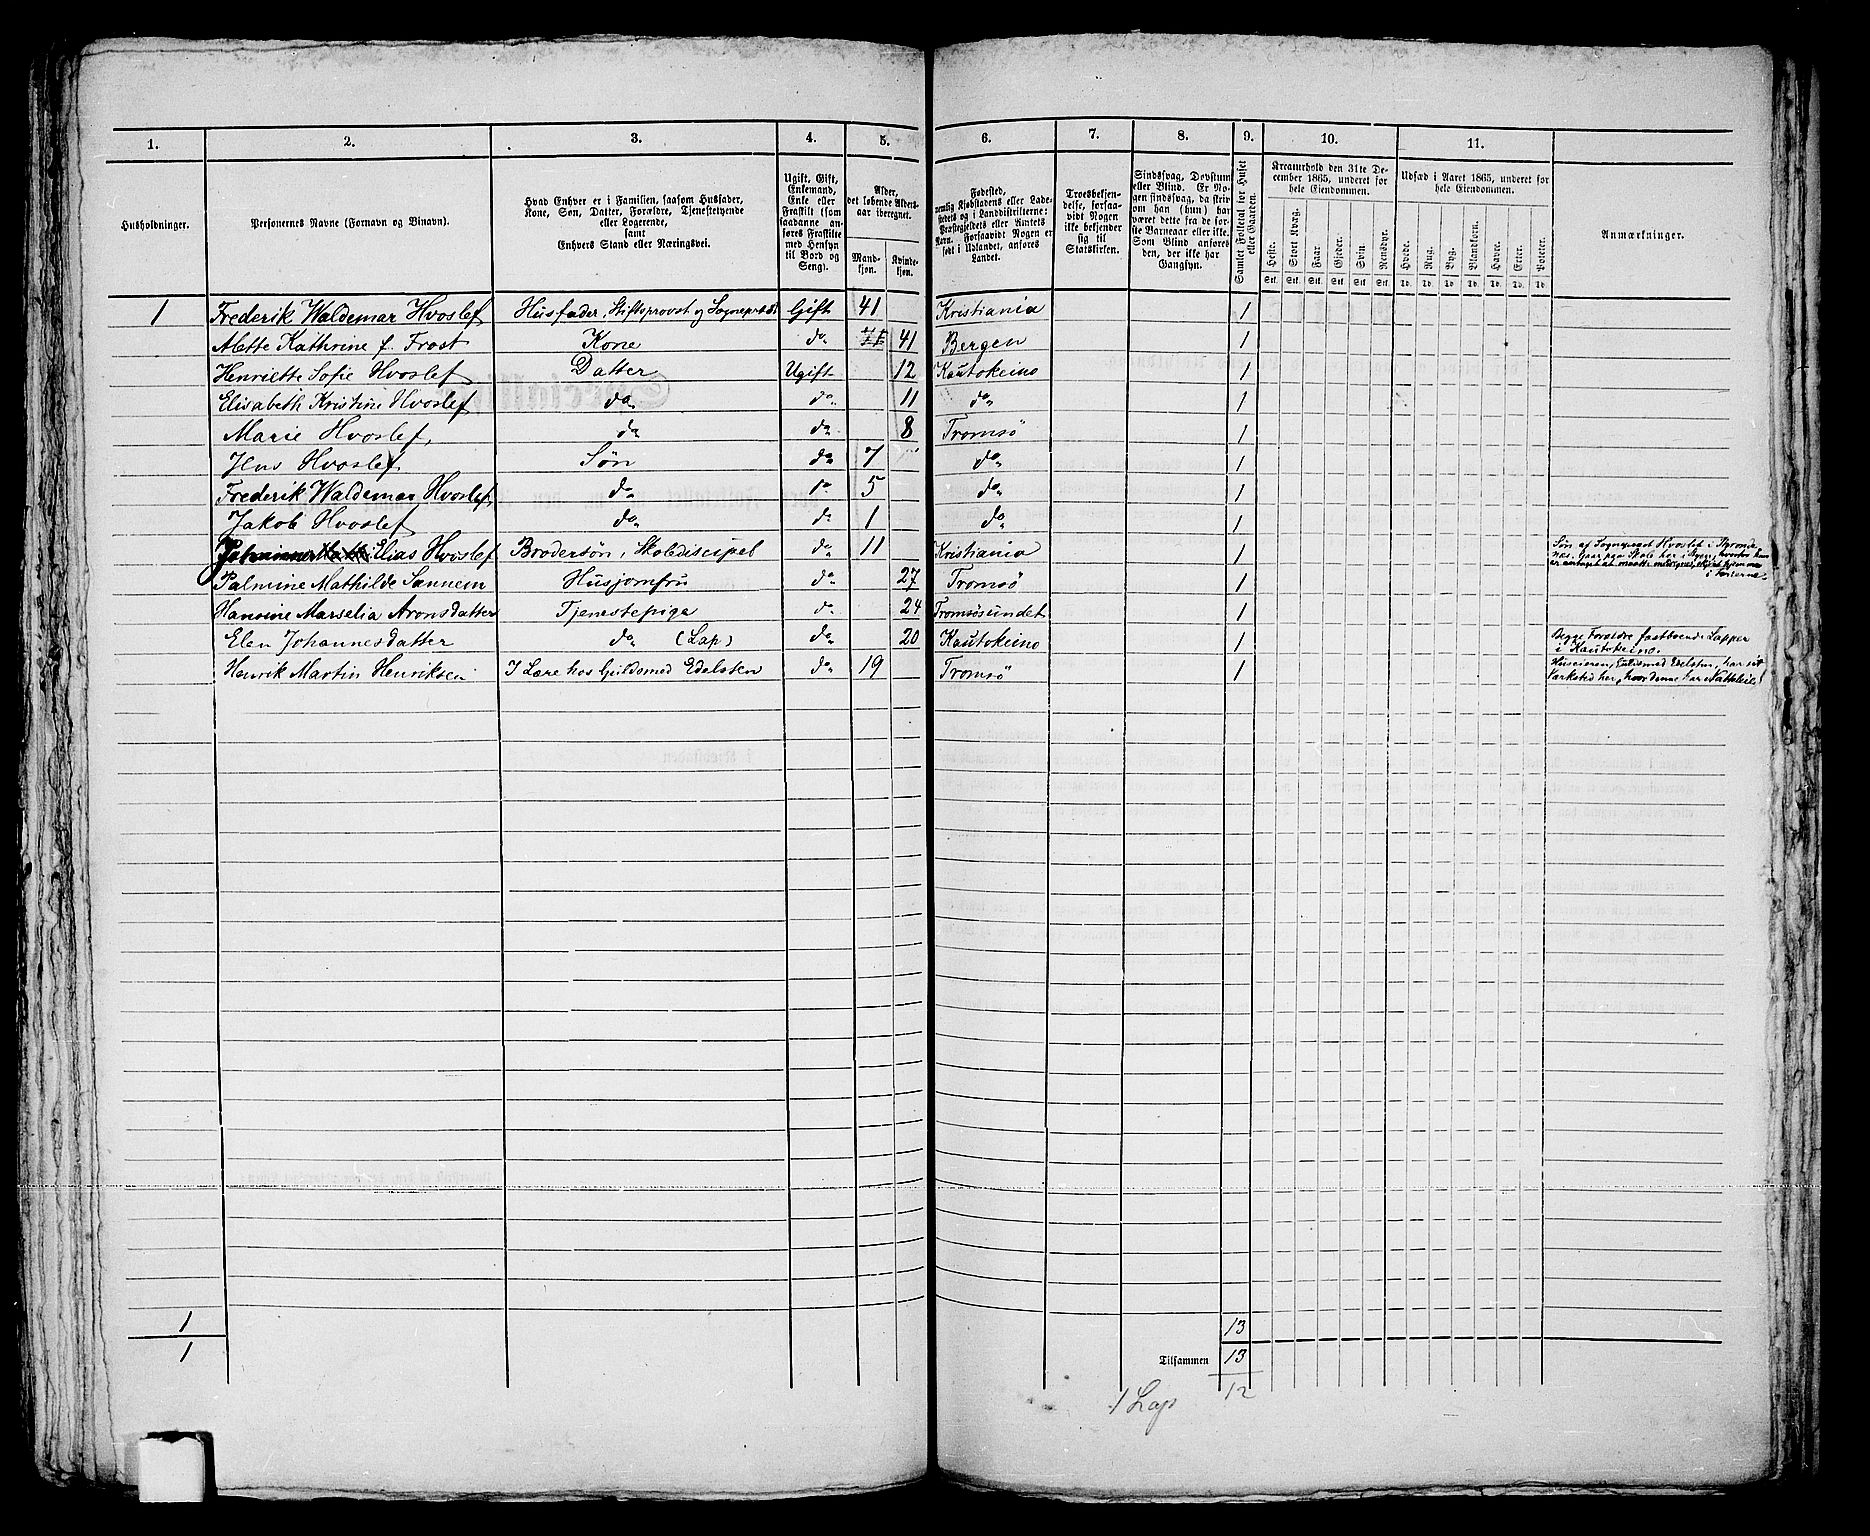 1. 2. 3. 4. 5. 6. 7. 8. 9. 10. 11.
Husholdninger.
Personernes Navne (Fornavn og Binavn).
Hvad Enhver er i Familien, saasom Husfader,
Kone, Søn, Datter, Forældre, Tjenestetyende
eller Logerende,
samt
Enhvers Stand eller Næringsvei.
Ugift, Gift,
Enkemand,
Enke eller
Fraskilt (som
saadanne an-
føres Fraskilte
med Hensyn
til Bord og
Seng).
Alder,
det løbende Alders-
aar iberegnet.
Mand-
kjøn.
Kvinde-
kjøn.
Fødested,
nemlig Kjøbstadens eller Lade-
stedets og i Landdistrikterne:
Præstegjeldets eller Amtets
Navn. Forsaavidt Nogen er
født i Udlandet, anføres
Landet.
Troesbekjen-
delse, forsaa-
vidt Nogen
ikke bekjender
sig til
Statskirken.
Sindssvag, Døvstum
eller Blind. Er No-
gen sindssvag, da skri-
som han (hun) har
været dette fra de før-
ste Barneaar eller ikke.
Som Blind anføres
den, der ikke har
Gangsyn.
Samlet Folketal for Huset
eller Gaarden.
Kreaturhold den 31te De-
cember 1865, underet for
hele Eiendommen.
Heste. Stort Kvæg. Faar. Gjeder. Svin. Rensdyr.
Stk. Stk. Stk. Stk. Stk. Stk.
Udsæd i Aaret 1865, underet for
hele Eiendommen.
Hvede. Rug. Byg. Blandkorn. Havre. Erter. Poteter.
Td. Td. Td. Td. Td. Td. Td.
Anmærkninger.
1 Frederik Waldemar Hvoslef Husfader, Stiftsprovst og Sognepræst Gift 41 Kristiania 1
Alette Kathrine f. Frost Kone do 41 Bergen 1
Henriette Sofie Hvoslef Datter Ugift 12 Kautokeino 1
Elisabeth Kristine Hvoslef do do 11 do 1
Marie Hvoslef do do 8 Tromsø 1
Jens Hvoslef Søn do 7 do 1
Frederik Waldemar Hvoslef do do 5 do 1
Jakob Hvoslef do do 1 do 1
Elias Hvoslef Brodersøn, Skoledisipel do 11 Kristiania 1 Søn af Sognepræst Hvoslef i
Palmine Mathilde Sannem Husjomfru do 27 Tromsø 1
Hansine Marselia Aronsdatter Tjenestepige do 24 Tromsøsundet 1
Elen Johannesdatter do (Lap) do 20 Kautokeino 1 Begge Forældre fastboende Lapper
i Kautokeino.
Henrik Martin Henriksen I Lære hos Guldsmed Edelsten do 19 Tromsø 1 Huseieren, Guldsmed Edelsten, har sit
Værksted her, hvor denne har Natteleie.
1 13
1 Tilsammen 13
1 Lap 12